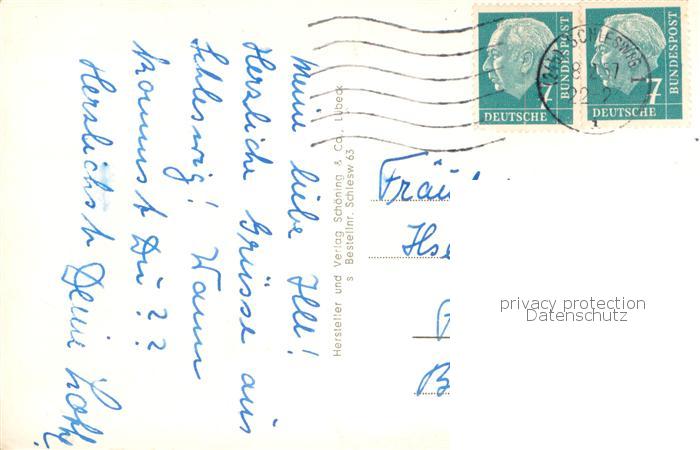 Meine liebe Ilse!
Herzliche Grüsse aus
Schleswig! Wann
kommst Du??
Herzlichst Deine
Hersteller und Verlag Schöning & Co., Lübeck
s Bestellnr. Schlesw 63
DEUTSCHE BUNDESPOST 7
DEUTSCHE BUNDESPOST 7
SCHLESWIG 1
Fräu
Ilse
B
privacy protection
Datenschutz